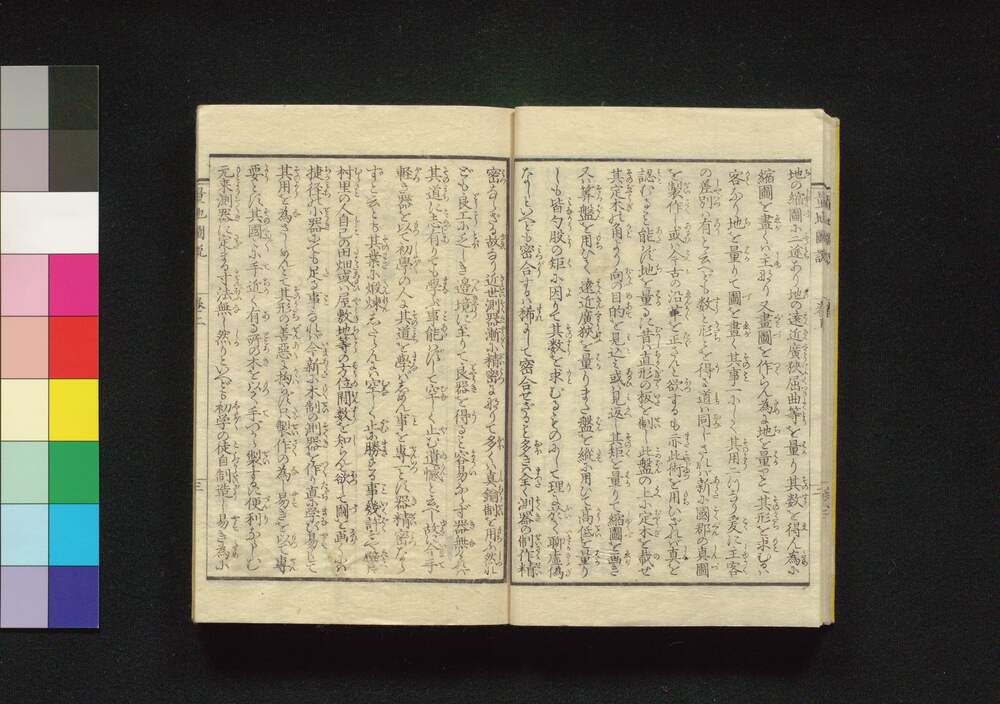 地の縮圖に二途あり地の遠近廣狹屈曲等を量り其数を得ん為に
縮圖を畫くハ主なり又畫圖を作らん為に地を量つて其形を求むるハ
客なり地を量りて圖を畫く其事一にして其用二つなり爰に主客
の差別ハ有と云へども数と形とを得る道ハ同じされバ新に國郡の真圖
を製作し或ハ今古の沿革を正さんと欲するも亦此術を用ひざれバ真を
認むること能ハず地を量るに昔ハ直形の板を制し此盤の上に定木を載せ
其定木の角より向の目的を見込ミ或ハ見返し其矩を量りて縮圖を画き
又ハ算盤を用ひて遠近廣狹を量りまた盤を縦に用ひて高低を量り
しも皆勾股の矩に因りて其数を求むるものにして理に於て聊虚偽
なしといへども密合するハ稀にして密合せざること多き全く測器の制作精
密ならざる故なり近世測器漸に精密になりて多くハ真鍮制を用ふ然れ
ども良工に乏しき邊境に至りてハ良器を得ること容易ならず器無れバ
其道に志有りても學ぶ事能ハずして空しく止む遺憾と云べし故に今手
軽き器を以て初學の人に其道を専ハらしめん事を専一とス器精密なら
ずと云とも其業に煅煉したらんハ空しく止に勝る事幾許ぞや譬バ
村里の人自己の田畑或ハ屋敷地等の方位間数を知らんと欲して圖を画くにハ
捷径の小器にても足る事なれバ今新に木制の測器を作り直悪ハ易くして
其用を為さしめんとて其形の善悪に拘ハらず只製作の為し易きを以て専
要とス其國々に手近く有る所の木を以て手づから製するに便利ならしむ
元来測器に定まる寸法無し然りといへども初学の徒自制造し易き為に
量地圖説
巻二
三